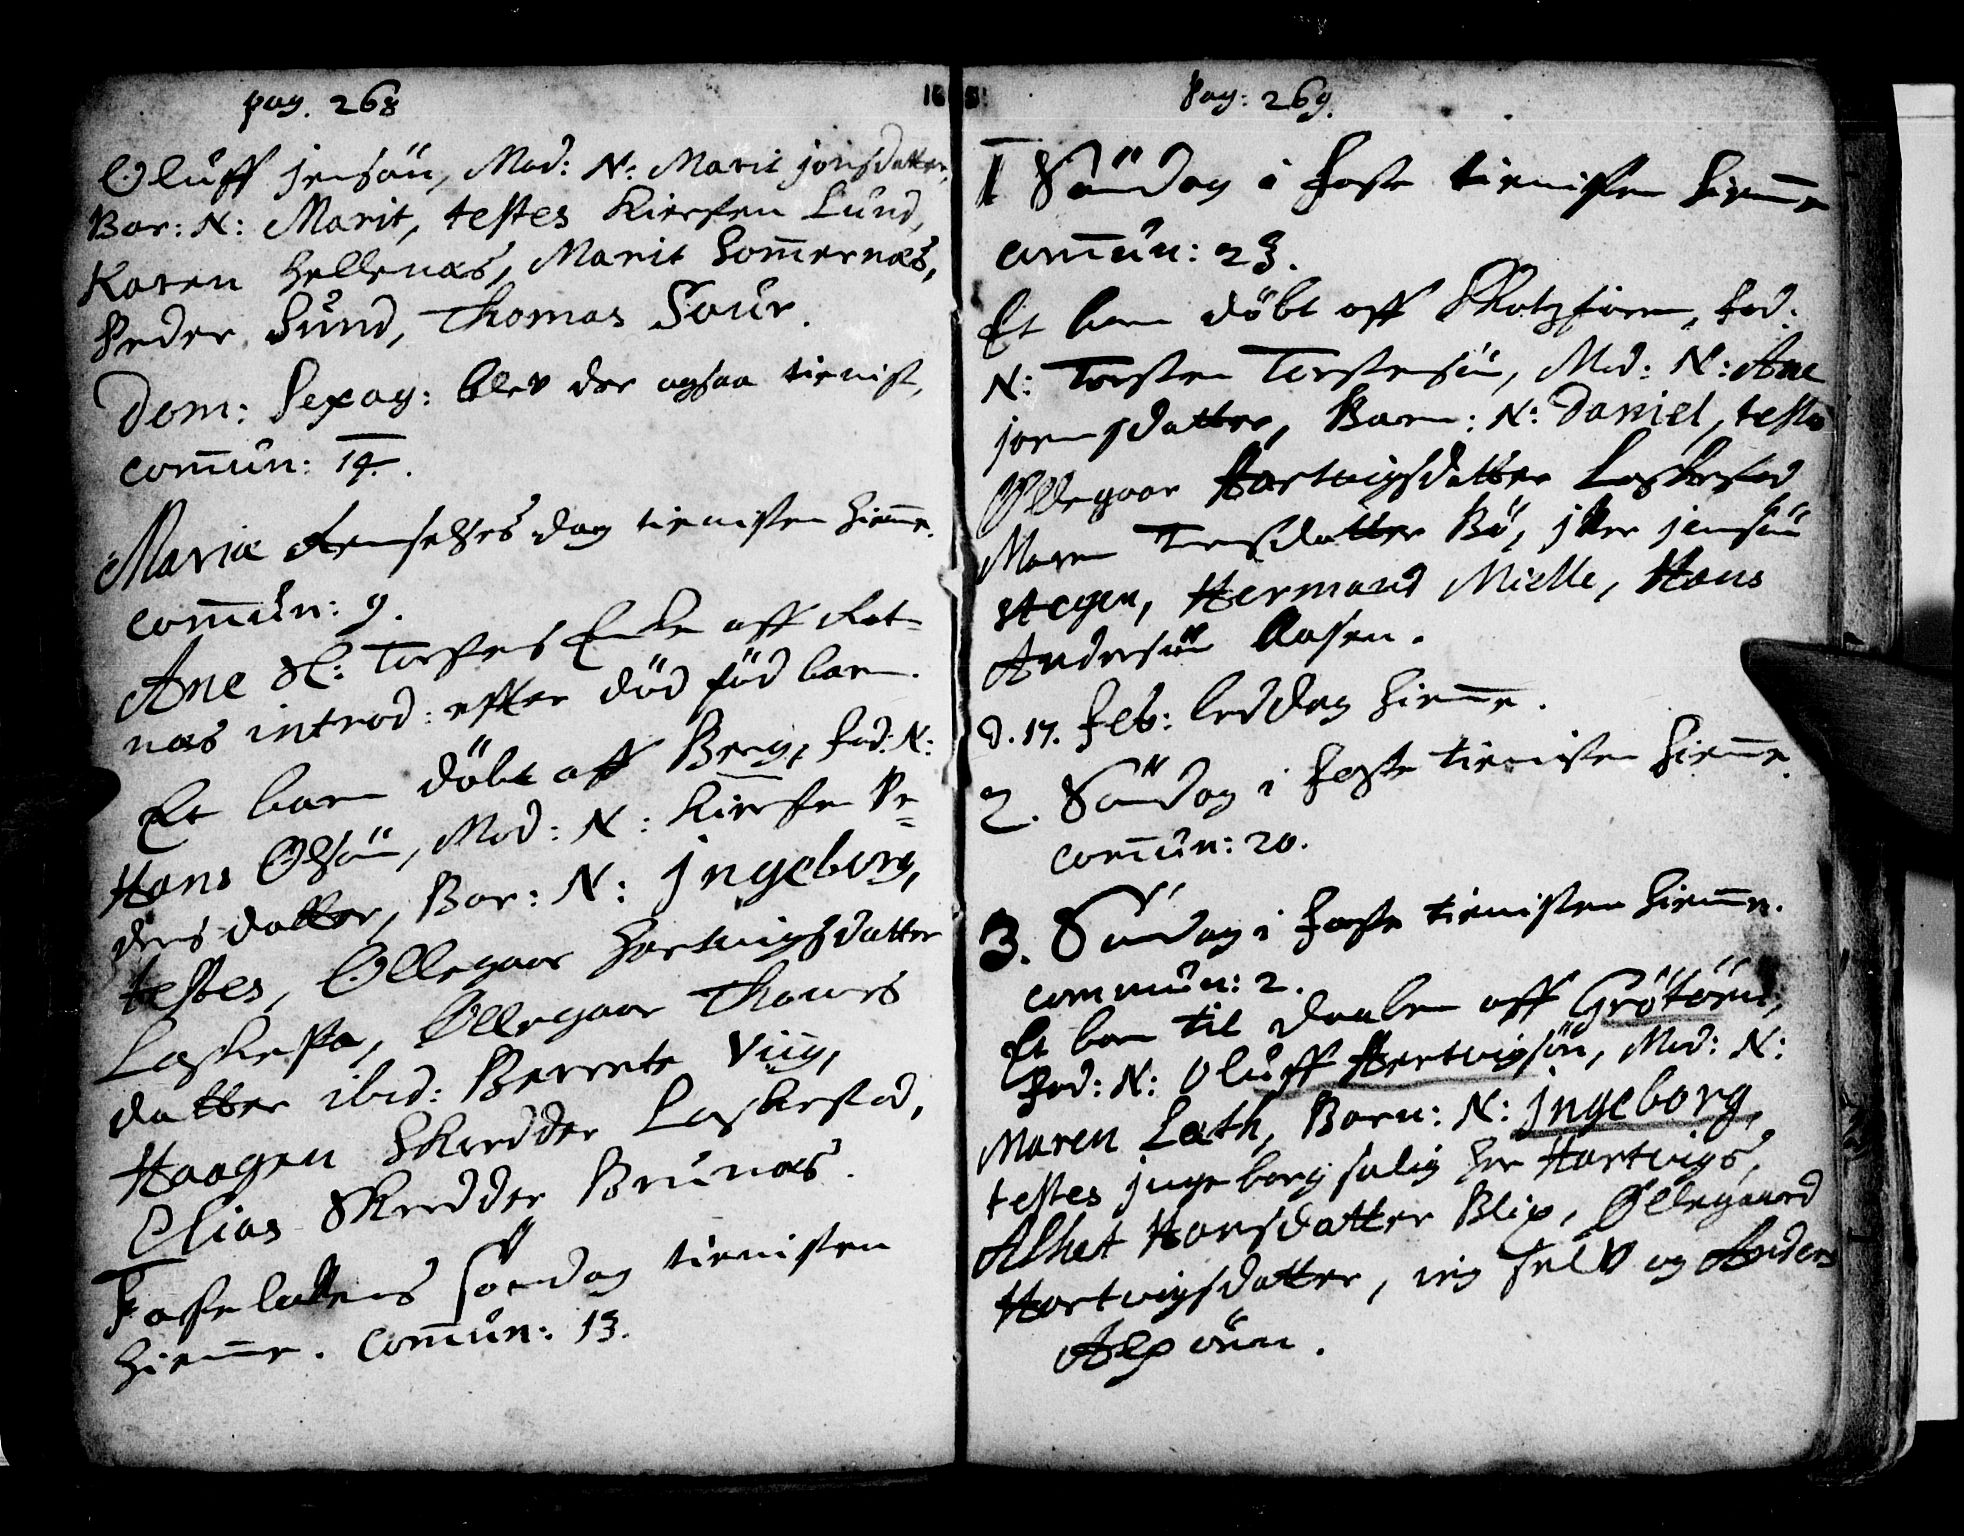 pag. 268
Oluff Jensøn, Mod: N: Marit jonsdatter,
Bar: N: Marit, testes Kiersten Lund,
Karen Hellenæs, Marit Sommernæs,
Peder Lund, Thomas Sour.
Dom: Sexag: blev der ogsaa tienist,
comun: 14.
Mariæ Renselses dag tienisten hieme.
comun: 9.
Ane Sl: Torstens Enke aff Rot-
næs introd: effter död föd barn.
Et barn döbt aff Berg, Fad: N:
Hans Olsøn, Mod: N: Kiersten Pe-
ders datter, Bar: N: Jngeborg,
testes, Ollegaar Hartvigsdatter
Laskesta, Ollegaar Thomes
datter ibid: Berrete Viig,
Haagen Skredder Laskestad,
Elias Skredder Brunæs.
Fastelauens søndag tienisten
hieme. Comun: 13.
Pag: 269.
1 Søndag i Faste tienisten hieme
comun: 23.
Et barn döbt aff Skotzfiorn, Fad:
N: Torsten Torstensøn, Mod: N: Ane
jonsdatter, Barn: N: Daniel, testes
Ollegaar Hartvigsdatter Laskestad
Maren datter Bö, jver jensøn
Hermand Mielle, Hans
Andersøn Aasen.
d. 17. Feb: beddag hieme.
2. Søndag i Faste tienisten hieme.
comun: 20.
3. Søndag i Faste tienisten hieme.
commun: 2.
Et barn til daaben aff Grötøen,
Fad: N: Oluff Hertvigsøn, Mod: N:
Maren Lath, Barn: N: Jngeborg,
testes jngeborg salig her Hartvigs,
Alhet Hansdatter Blix, Ollegaard
Hartvigsdatter, ieg selv og Anders